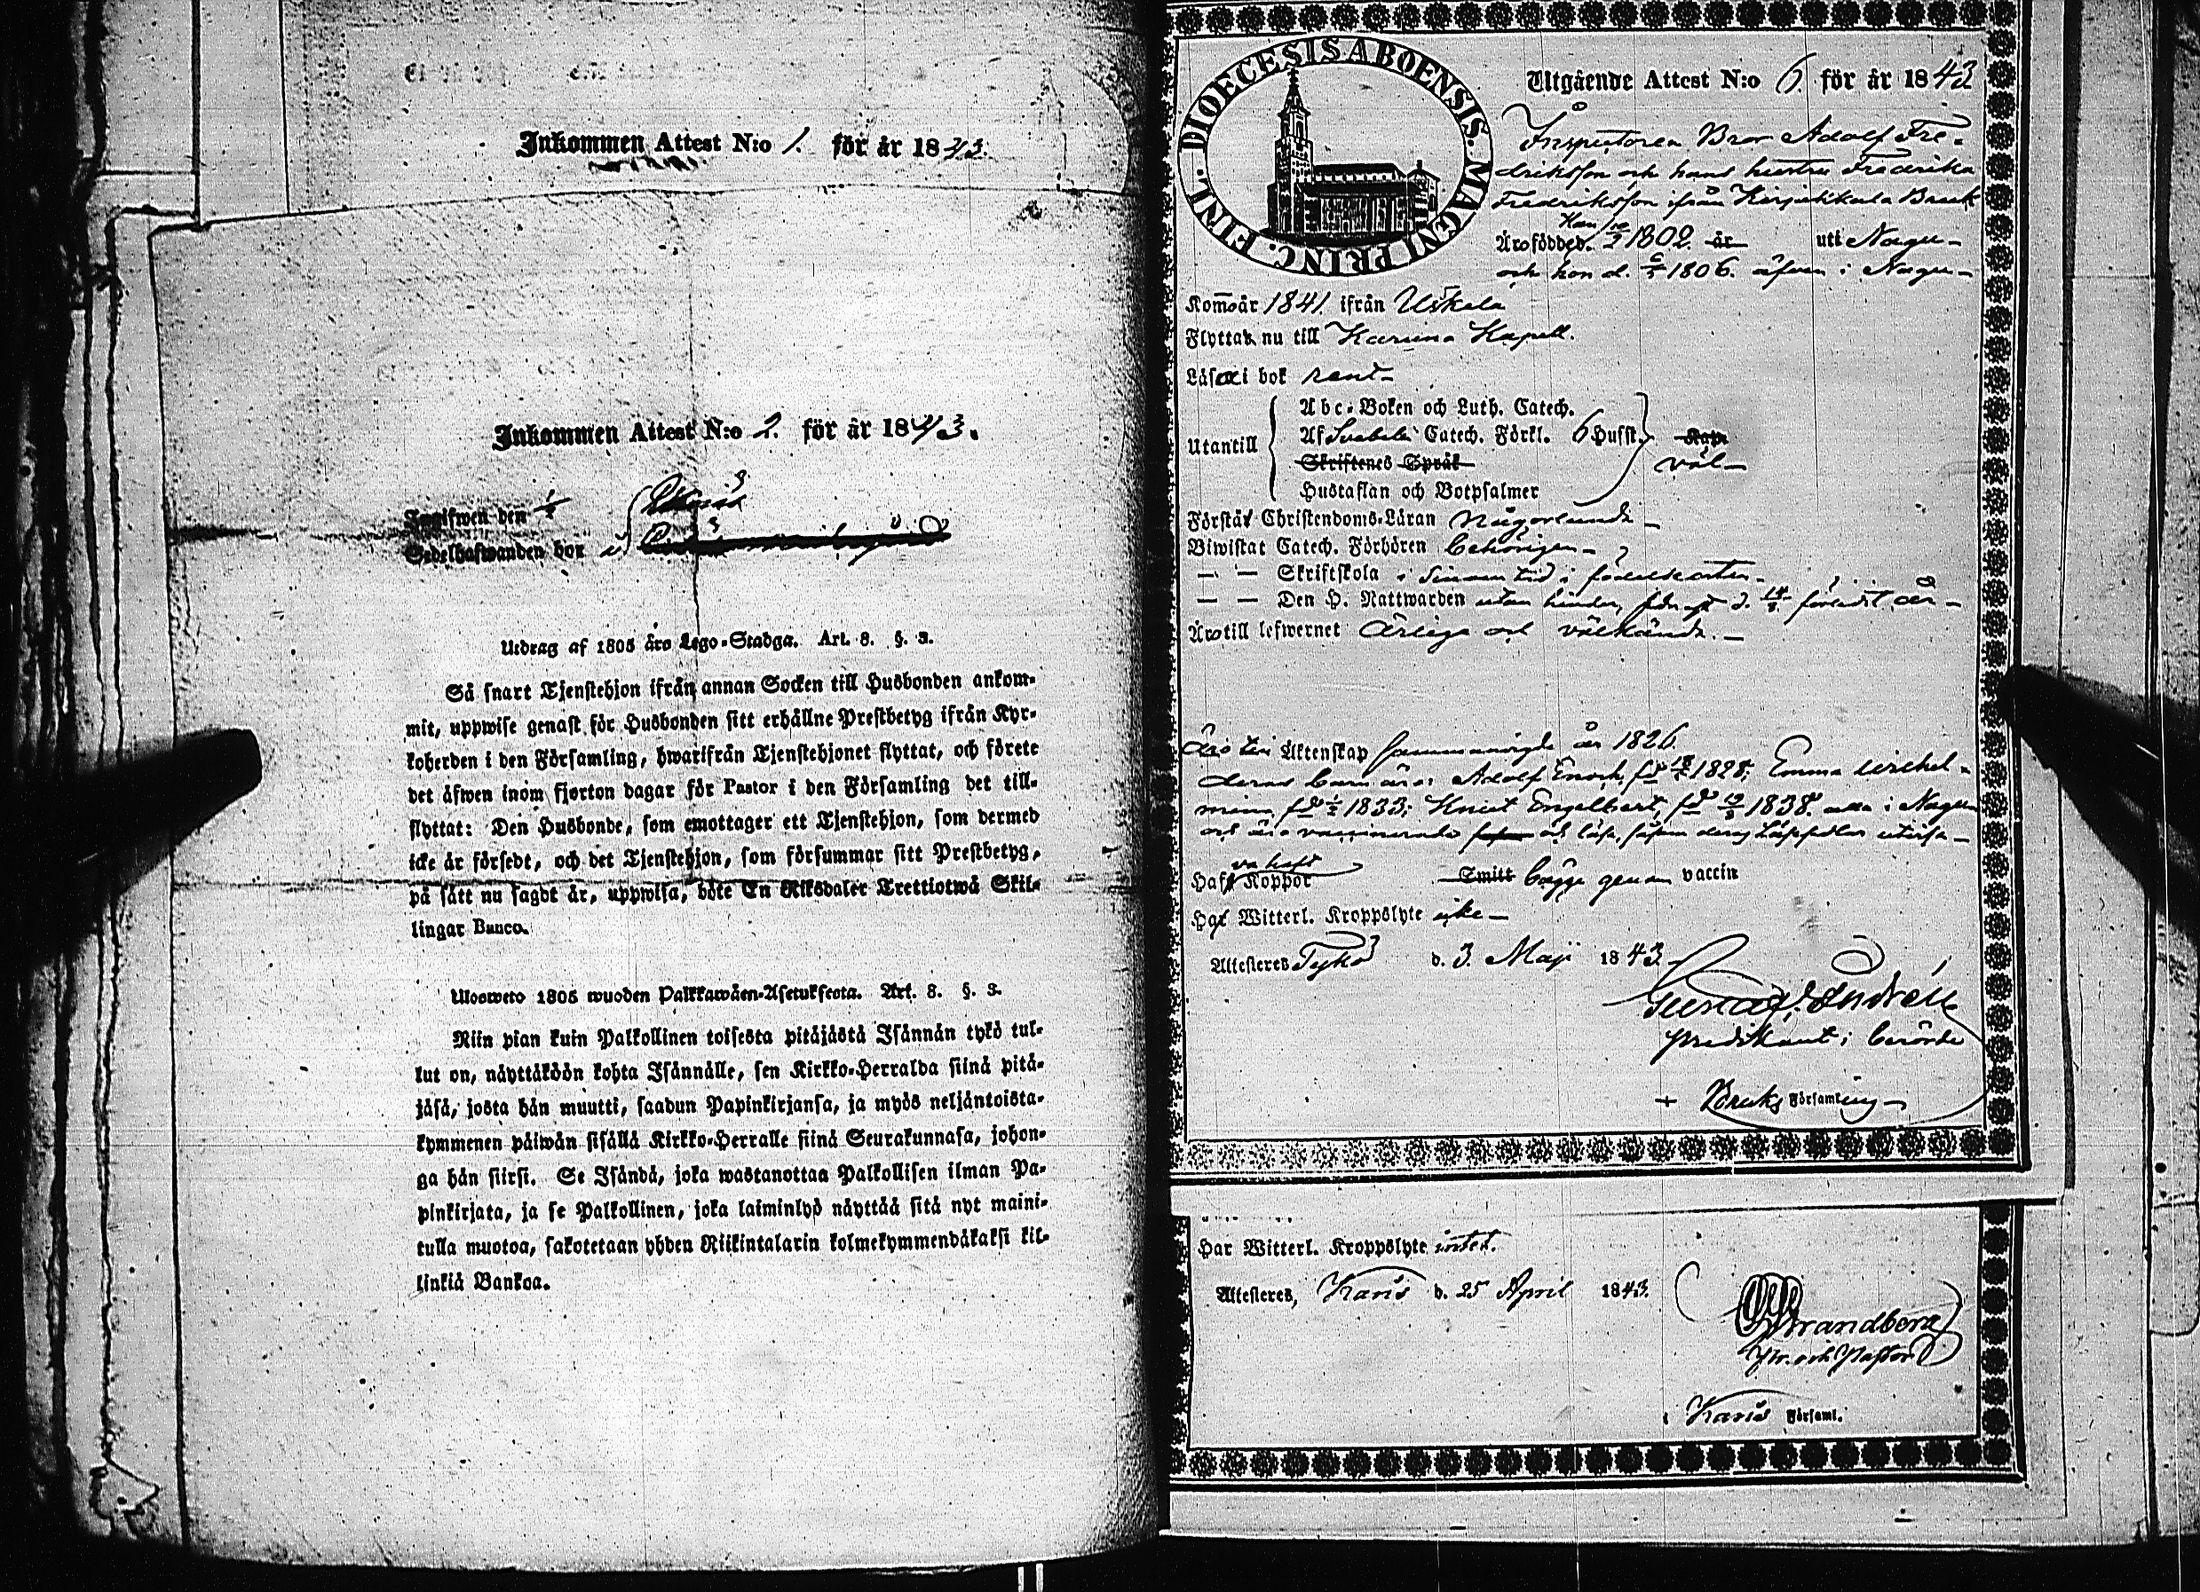 Inkommen Attest N:o 1. för år 1843.
Inkommen Attest N:o 2. för år 1843.
Ingifwen den
Sedelhafwanden bor i
Utdrag af 1805 års Lego-Stadga. Art. 8. §. 3.
Så snart Tjenstehjon ifrån annan Socken till Husbonden ankom-
mit, uppwise genast för Husbonden sitt erhållne Prestbetyg ifrån Kyr-
koherden i den Församling, hwarifrån Tjenstehjonet flyttat, och förete
det äfwen inom fjorton dagar för Pastor i den Församling det till-
flyttat: Den Husbonde, som emottager ett Tjenstehjon, som dermed
icke är försedt, och det Tjenstehjon, som försummar sitt Prestbetyg,
på sätt nu sagdt är, uppwisa, böte En Riksdaler Trettiotwå Skil-
lingar Banco.
Ulosweto 1805 wuoden Palkkawäen-Asetuksesta. Art. 8. §. 3.
Niin pian kuin Palkollinen toisesta pitäjästä Isännän tykö tul-
lut on, näyttäköön kohta Isännälle, sen Kirkko-Herralda siinä pitä-
jäsä, josta hän muutti, saadun Papinkirjansa, ja myös neljäntoista-
kymmenen päiwän sisällä Kirkko-Herralle siinä Seurakunnasa, johon-
ga hän siirsi. Se Isändä, joka wastanottaa Palkollisen ilman Pa-
pinkirjata, ja se Palkollinen, joka laiminlyö näyttää sitä nyt maini-
tulla muotoa, sakotetaan yhden Riikintalarin kolmekymmendäkaksi kil-
linkiä Bankoa.
DIOECESIS ABOENSIS. MAGNI PRINC. FINL.
Utgående Attest N:o 6. för år 1843
Inspectoren Bror Adolf Fre-
driksson och hans hustru Fredrika
Fredriksson ifrån Kirjakkala Bruk
Han
Äro födde d. 1802. år uti Nagu
och hon d. 1806. äfven i Nagu
Kommo år 1841. ifrån Uskela
Flytta nu till Karuna Kapell.
Läsa i bok rent
Utantill
Abc-Boken och Luth. Catech.
Af Svebelii Catech. Förkl. 6 Hufst.
Skriftenes Språk
Hustaflan och Botpsalmer
väl
Förstå Christendoms-Läran någorlunda
Biwistat Catech. Förhören behörigen
— — Skriftskola i sinom tid i födelseorten
— — Den H. Nattwarden utan hinder, förledit år
Äro till lefwernet ärliga och välkända.
Äro i Äktenskap sammanvigde år 1826.
deras barn äro: Adolf Enoch, född 1828; Emma Wilhel-
mina född 1833; Knut Engelbert, född 1838. alla i Nagu
och äro vaccinerade
Haft Koppor Smitt bägge genom vaccin
Ha Witterl. Kroppslyte icke
Attesteres Tykö d. 3. Maji 1843.
Gustaf Andrén
Predikant i berörde
Bruks Församling
Har Witterl. Kroppslyte intet.
Attesteres, Karis d. 25 April 1843.
Strandberg
Pr. och Pastor
i Karis Församl.